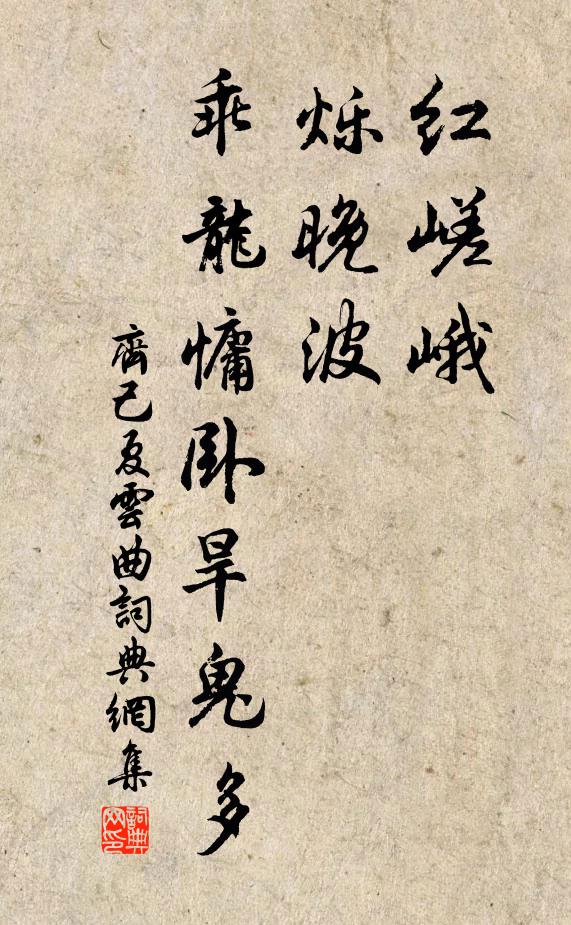 红嵯峨
烁晚波
乖龍慵卧旱鬼多
齊己夏雲曲詞典網集
詞典
网印